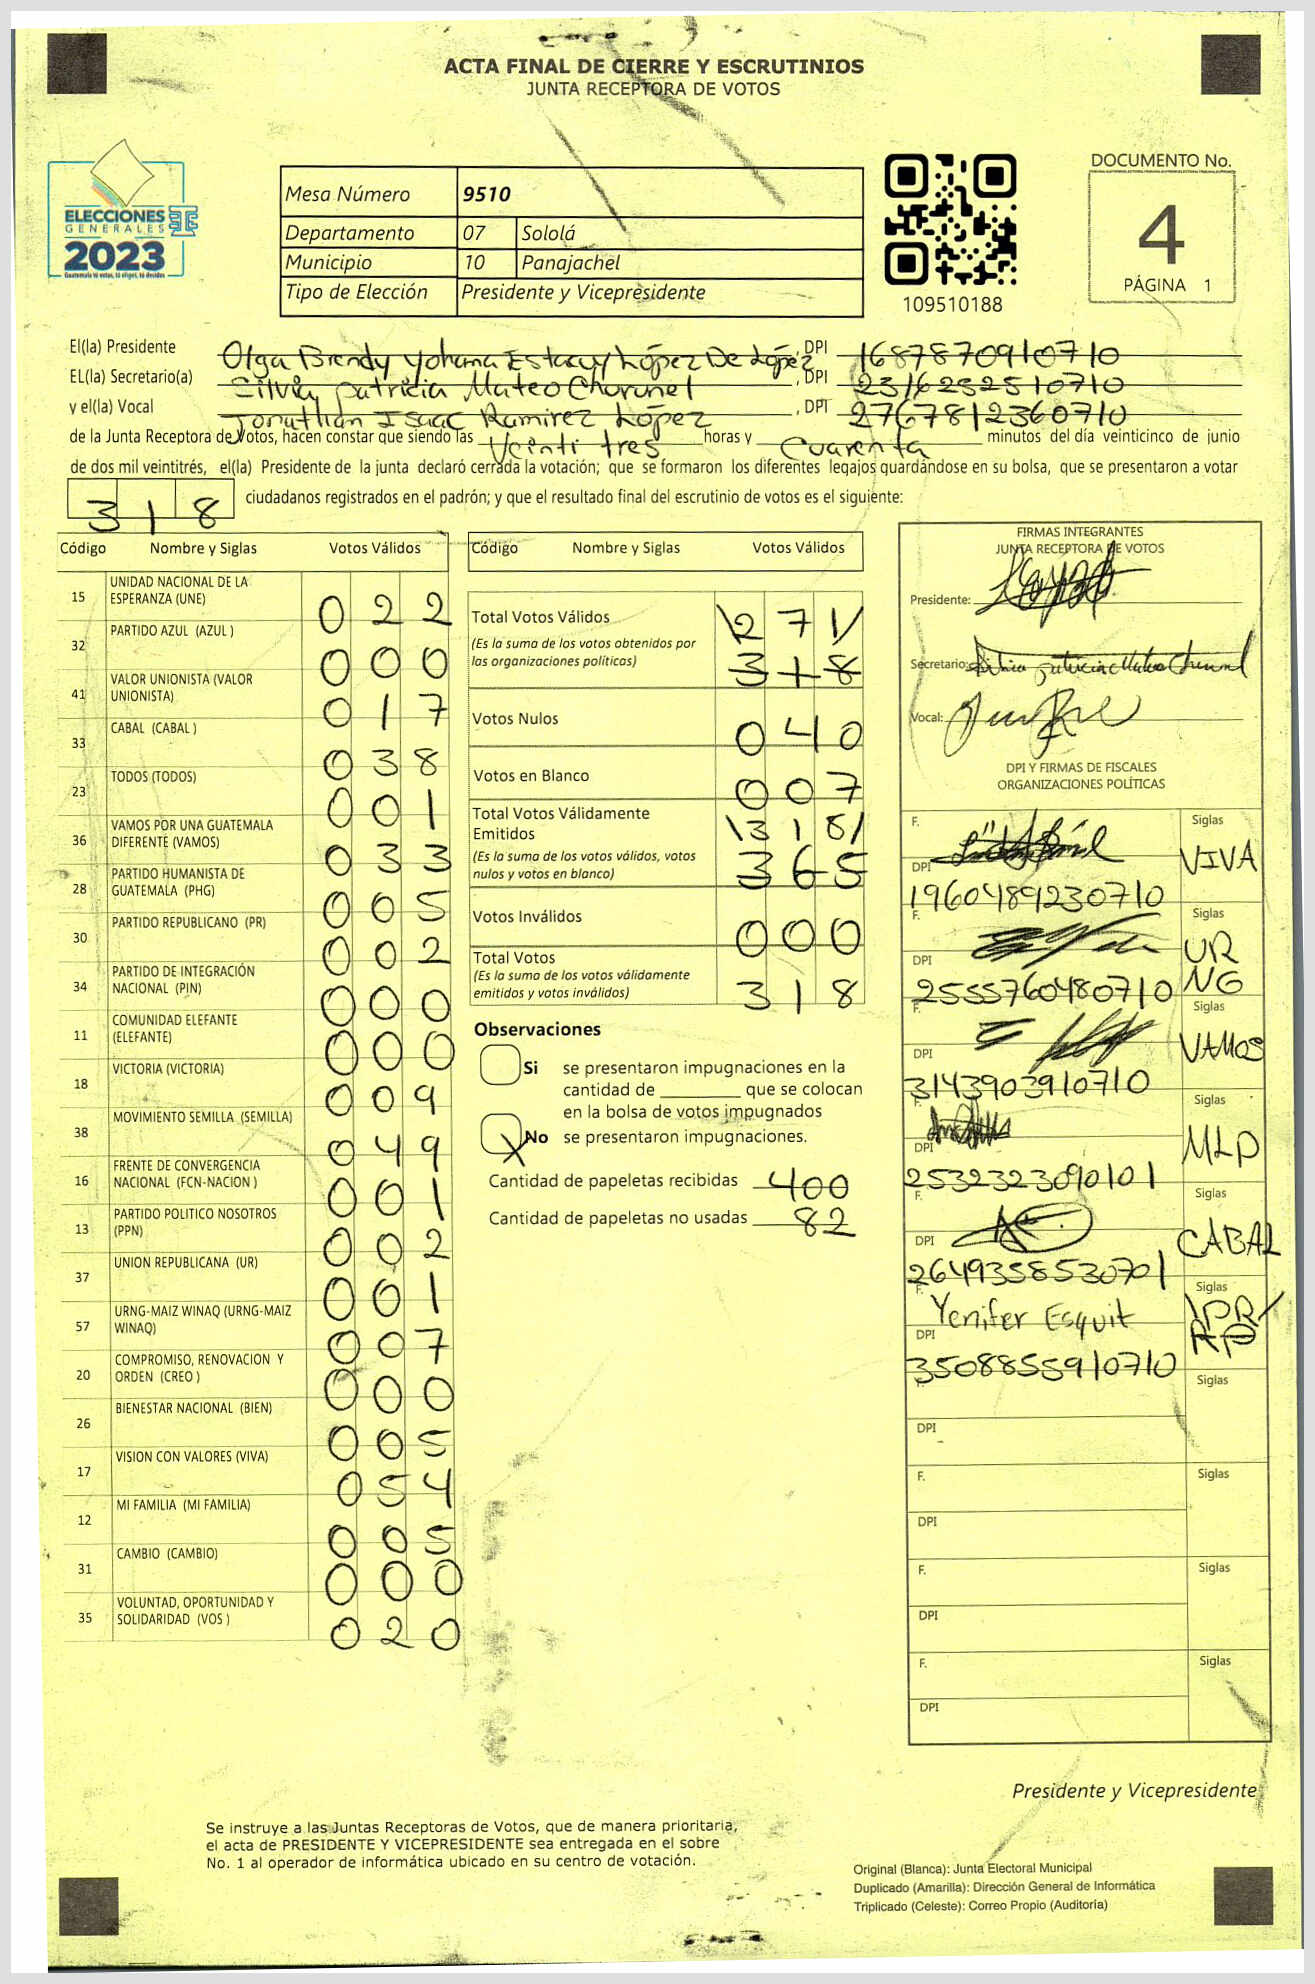 ACTA FINAL DE CIERRE Y ESCRUTINIOS
JUNTA RECEPTORA DE VOTOS
ELECCIONES
GENERALES
2023
Guatemala tú votas, tú eliges, tú decides
Mesa Número 9510
Departamento 07 Sololá
Municipio 10 Panajachel
Tipo de Elección Presidente y Vicepresidente
109510188
DOCUMENTO No.
4
PÁGINA 1
El(la) Presidente Olga Brendy Yohama Estacuy López De López, DPI 1687870910710
EL(la) Secretario(a) Silvia Patricia Mateo Churunel, DPI 2316252510710
y el(la) Vocal Jonathan Isaac Ramirez López, DPI 2767812360710
de la Junta Receptora de Votos, hacen constar que siendo las Veinti tres horas y Cuarenta minutos del día veinticinco de junio
de dos mil veintitrés, el(la) Presidente de la junta declaró cerrada la votación; que se formaron los diferentes legajos guardándose en su bolsa, que se presentaron a votar
318 ciudadanos registrados en el padrón; y que el resultado final del escrutinio de votos es el siguiente:
Código Nombre y Siglas Votos Válidos
15 UNIDAD NACIONAL DE LA ESPERANZA (UNE) 022
32 PARTIDO AZUL (AZUL ) 000
41 VALOR UNIONISTA (VALOR UNIONISTA) 017
33 CABAL (CABAL ) 038
23 TODOS (TODOS) 001
36 VAMOS POR UNA GUATEMALA DIFERENTE (VAMOS) 033
28 PARTIDO HUMANISTA DE GUATEMALA (PHG) 005
30 PARTIDO REPUBLICANO (PR) 002
34 PARTIDO DE INTEGRACIÓN NACIONAL (PIN) 000
11 COMUNIDAD ELEFANTE (ELEFANTE) 000
18 VICTORIA (VICTORIA) 009
38 MOVIMIENTO SEMILLA (SEMILLA) 049
16 FRENTE DE CONVERGENCIA NACIONAL (FCN-NACION ) 001
13 PARTIDO POLITICO NOSOTROS (PPN) 002
37 UNION REPUBLICANA (UR) 001
57 URNG-MAIZ WINAQ (URNG-MAIZ WINAQ) 007
20 COMPROMISO, RENOVACION Y ORDEN (CREO ) 000
26 BIENESTAR NACIONAL (BIEN) 005
17 VISION CON VALORES (VIVA) 054
12 MI FAMILIA (MI FAMILIA) 005
31 CAMBIO (CAMBIO) 000
35 VOLUNTAD, OPORTUNIDAD Y SOLIDARIDAD (VOS ) 020
Código Nombre y Siglas Votos Válidos
Total Votos Válidos \271/
(Es la suma de los votos obtenidos por
las organizaciones políticas) 318
Votos Nulos 040
Votos en Blanco 007
Total Votos Válidamente
Emitidos \318/
(Es la suma de los votos válidos, votos
nulos y votos en blanco) 365
Votos Inválidos 000
Total Votos
(Es la suma de los votos válidamente
emitidos y votos inválidos) 318
Observaciones
Si se presentaron impugnaciones en la
cantidad de ________ que se colocan
en la bolsa de votos impugnados
X No se presentaron impugnaciones.
Cantidad de papeletas recibidas 400
Cantidad de papeletas no usadas 82
FIRMAS INTEGRANTES
JUNTA RECEPTORA DE VOTOS
Presidente:
Secretario: Silvia patricia Mateo Churunel
Vocal:
DPI Y FIRMAS DE FISCALES
ORGANIZACIONES POLÍTICAS
F. Siglas
DPI VIVA
1960489230710
F. Siglas
DPI UR
2555760480710 NG
F. Siglas
DPI VAMOS
3143903910710
F. Siglas
DPI MLP
2532323090101
F. Siglas
DPI CABAL
2649358530701
F. Yenifer Esquit Siglas
DPI \PR/
3508855910710 RP
F. Siglas
DPI
F. Siglas
DPI
F. Siglas
DPI
F. Siglas
DPI
Presidente y Vicepresidente
Se instruye a las Juntas Receptoras de Votos, que de manera prioritaria,
el acta de PRESIDENTE Y VICEPRESIDENTE sea entregada en el sobre
No. 1 al operador de informática ubicado en su centro de votación.
Original (Blanca): Junta Electoral Municipal
Duplicado (Amarilla): Dirección General de Informática
Triplicado (Celeste): Correo Propio (Auditoría)